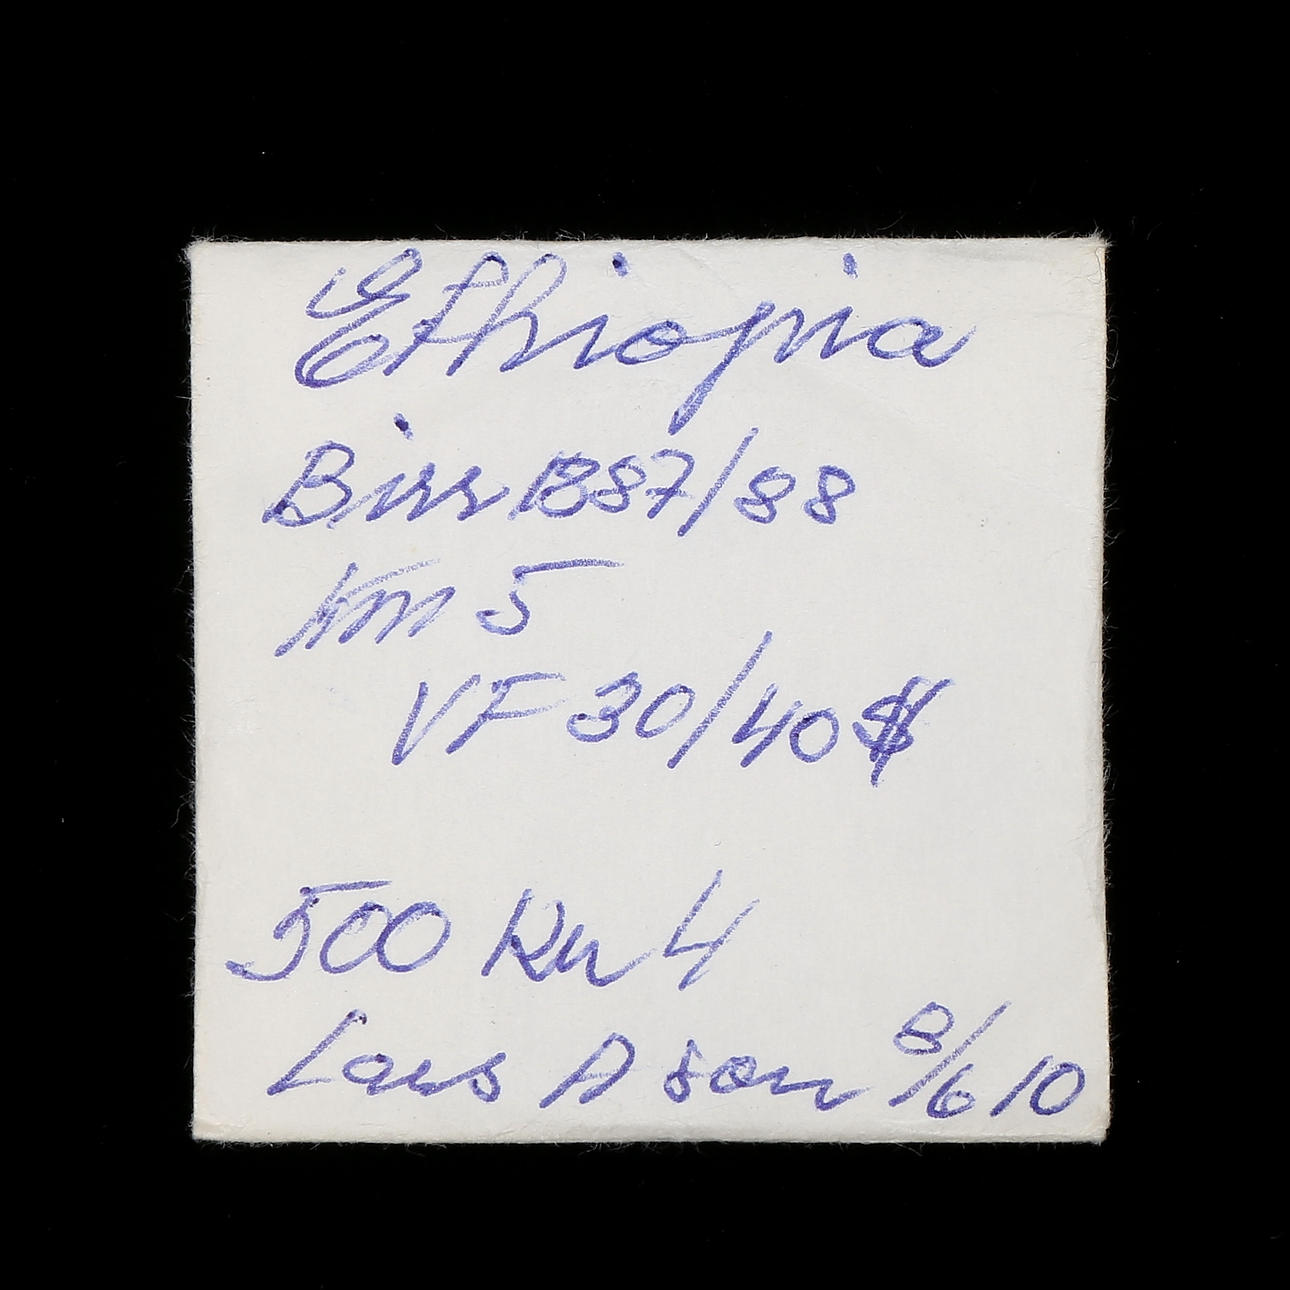 Ethiopia
Birr 1887/88
Km 5
VF 30/40 $
500 Kr 4
Lars A son 8/6 10